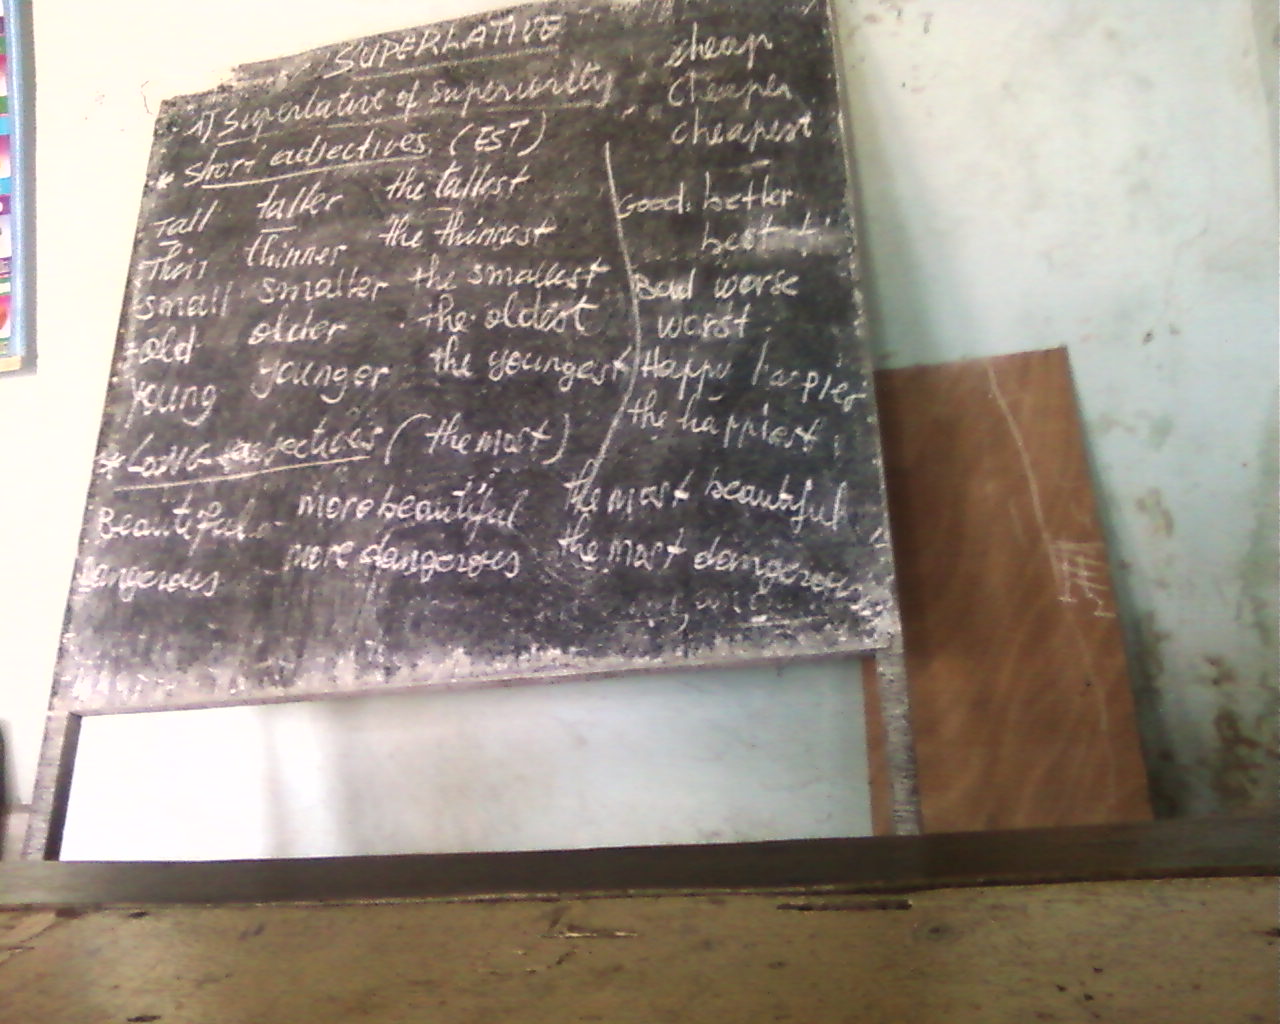 SUPERLATIVE
1) Superlative of superiority
* short adjectives (EST)
Tall taller the tallest
Thin thinner the thinnest
small smaller the smallest
old older the oldest
young younger the youngest
* LONG adjectives (the most)
Beautiful more beautiful the most beautiful
Dangerous more dangerous the most dangerous
cheap
cheaper
cheapest
Good better
best
Bad worse
worst
Happy happier
the happiest